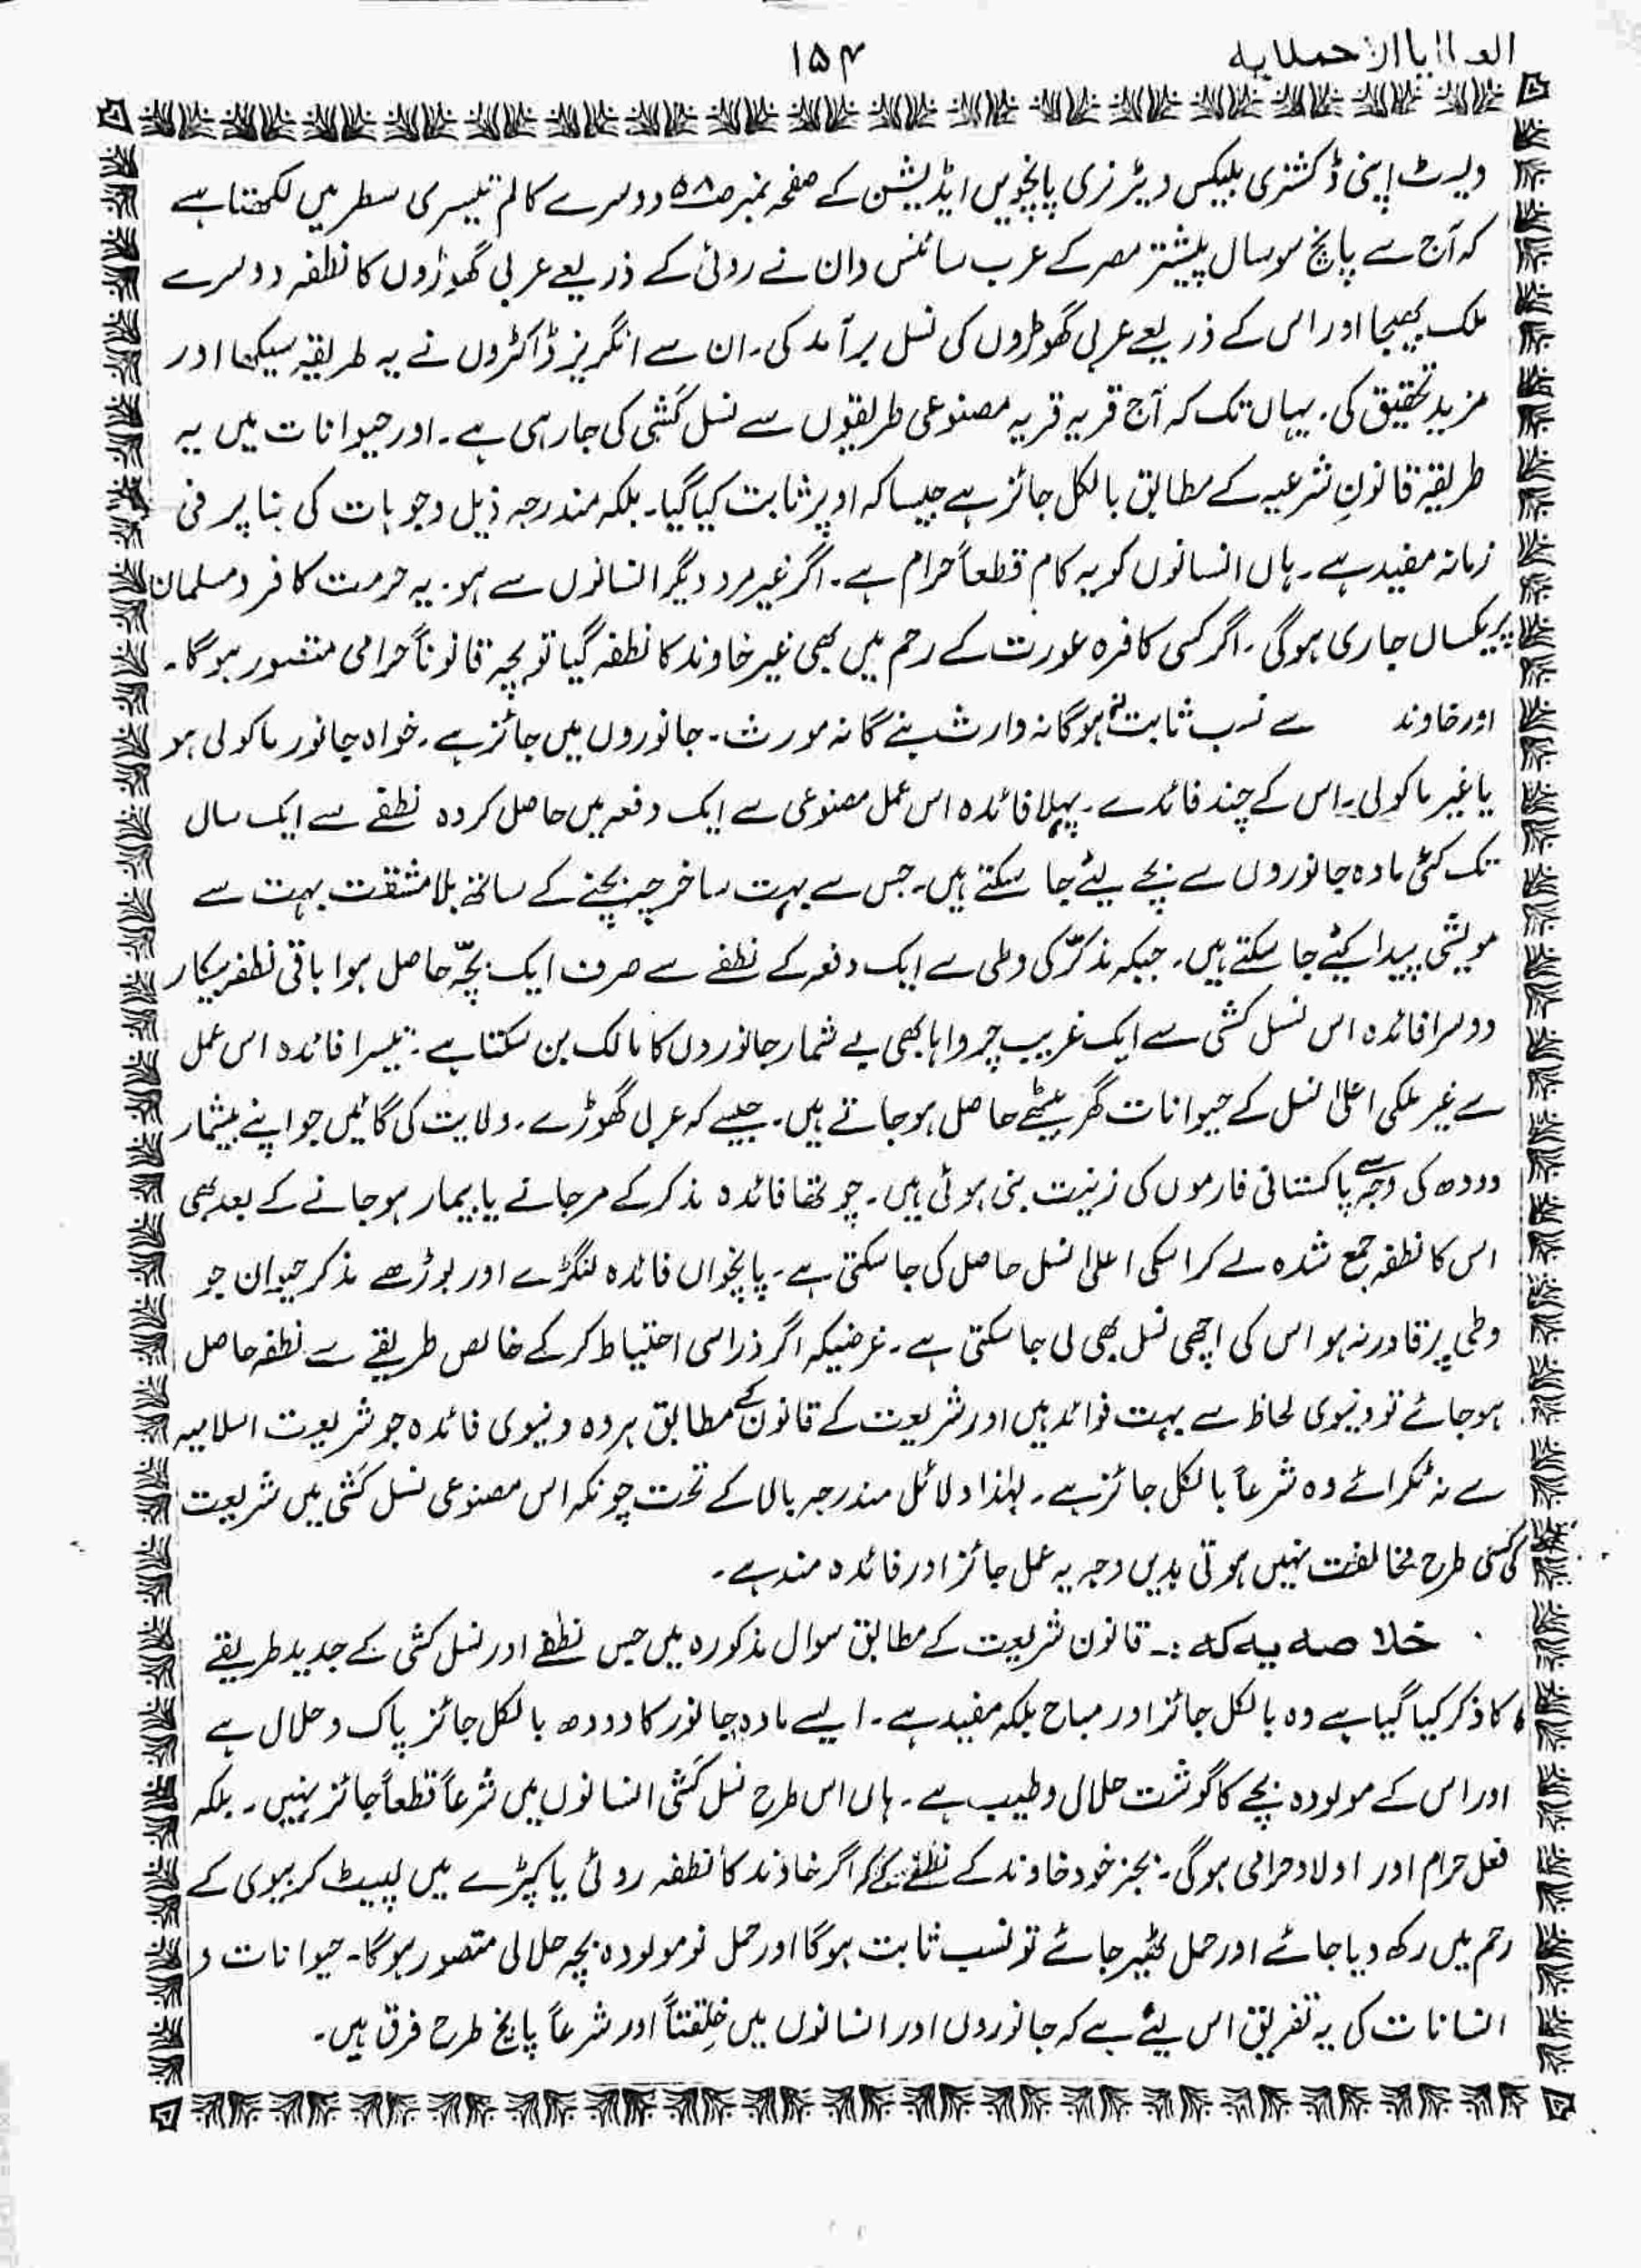 العطایا الاحمدیہ
۱۵۴
ویسٹ اپنی ڈکشنری بلیکس ویٹرنری پانچویں ایڈیشن کے صفحہ نمبر ۵۸ دوسرے کالم تیسری سطر میں لکھتا ہے
کہ آج سے پانچ سو سال پیشتر مصر کے عرب سائنس دان نے روئی کے ذریعے عربی گھوڑوں کا نطفہ دوسرے
ملک بھیجا اور اس کے ذریعے عربی گھوڑوں کی نسل برآمد کی۔ ان سے انگریز ڈاکٹروں نے یہ طریقہ سیکھا اور
مزید تحقیق کی۔ یہاں تک کہ آج قریہ قریہ مصنوعی طریقوں سے نسل کُشی کی جا رہی ہے۔ اور حیوانات میں یہ
طریقہ قانونِ شرعیہ کے مطابق بالکل جائز ہے جیسا کہ اوپر ثابت کیا گیا۔ بلکہ مندرجہ ذیل وجوہات کی بنا پر فی
زمانہ مفید ہے۔ ہاں انسانوں کو یہ کام قطعاً حرام ہے۔ اگر غیر مرد دیگر انسانوں سے ہو۔ یہ حرمت کافر و مسلمان
پر یکساں جاری ہوگی۔ اگر کسی کافرہ عورت کے رحم میں بھی غیر خاوند کا نطفہ گیا تو بچہ قانوناً حرامی متصور ہوگا۔
اور خاوند سے نسب ثابت نہ ہوگا نہ وارث بنے گا نہ مورث۔ جانوروں میں جائز ہے۔ خواہ جانور ماکولی ہو
یا غیر ماکولی۔ اس کے چند فائدے۔ پہلا فائدہ اس عمل مصنوعی سے ایک دفعہ میں حاصل کردہ نطفے سے ایک سال
تک کئی مادہ جانوروں سے بچے لیئے جا سکتے ہیں۔ جس سے بہت سا خرچہ بچنے کے ساتھ بلا مشقت بہت سے
مویشی پیدا کیئے جا سکتے ہیں۔ جبکہ مذکّر کی وطی سے ایک دفعہ کے نطفے سے صرف ایک بچّہ حاصل ہوا باقی نطفہ بیکار
دوسرا فائدہ اس نسل کشی سے ایک غریب چرواہا بھی بے شمار جانوروں کا مالک بن سکتا ہے : تیسرا فائدہ اس عمل
سے غیر ملکی اعلیٰ نسل کے حیوانات گھر بیٹھے حاصل ہو جاتے ہیں۔ جیسے کہ عربی گھوڑے۔ ولایت کی گائیں جو اپنے بیشمار
دودھ کی وجہ سے پاکستانی فارموں کی زینت بنی ہوئی ہیں۔ چوتھا فائدہ مذکر کے مر جانے یا بیمار ہو جانے کے بعد بھی
اس کا نطفہ جمع شدہ لے کر اسکی اعلیٰ نسل حاصل کی جا سکتی ہے۔ پانچواں فائدہ لنگڑے اور بوڑھے مذکر حیوان جو
وطی پر قادر نہ ہو اس کی اچھی نسل بھی لی جا سکتی ہے۔ غرضیکہ اگر ذرا سی احتیاط کر کے خالص طریقے سے نطفہ حاصل
ہو جائے تو دنیوی لحاظ سے بہت فوائد ہیں اور شریعت کے قانون کے مطابق ہر وہ دنیوی فائدہ جو شریعت اسلامیہ
سے نہ ٹکرائے وہ شرعاً بالکل جائز ہے۔ لہٰذا دلائل مندرجہ بالا کے تحت چونکہ اس مصنوعی نسل کَشی میں شریعت
کی کسی طرح مخالفت نہیں ہوتی بدیں وجہ یہ عمل جائز اور فائدہ مند ہے۔
خلاصہ یہ کہ :۔ قانون شریعت کے مطابق سوال مذکورہ میں جس نطفے اور نسل کشی کے جدید طریقے
کا ذکر کیا گیا ہے وہ بالکل جائز اور مباح بلکہ مفید ہے۔ ایسے مادہ جانور کا دودھ بالکل جائز پاک و حلال ہے
اور اس کے مولودہ بچے کا گوشت حلال و طیب ہے۔ ہاں اس طرح نسل کَشی انسانوں میں شرعاً قطعاً جائز نہیں۔ بلکہ
فعل حرام اور اولاد حرامی ہوگی۔ بجز خود خاوند کے نطفے کے کہ اگر خاوند کا نطفہ روئی یا کپڑے میں لپیٹ کر بیوی کے
رحم میں رکھ دیا جائے اور حمل ٹھیر جائے تو نسب ثابت ہوگا اور حمل نو مولودہ بچہ حلالی متصور ہوگا۔ حیوانات و
انسانات کی یہ تفریق اس لیئے ہے کہ جانوروں اور انسانوں میں خِلقتاً اور شرعاً پانچ طرح فرق ہیں۔